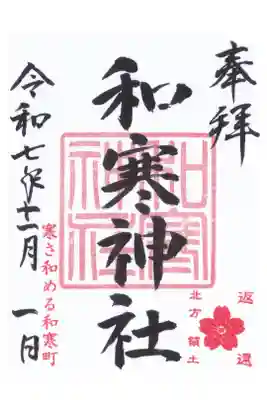 奉拝
和寒神社
令和七年十一月一日
寒さ和める和寒町
北方領土
返還